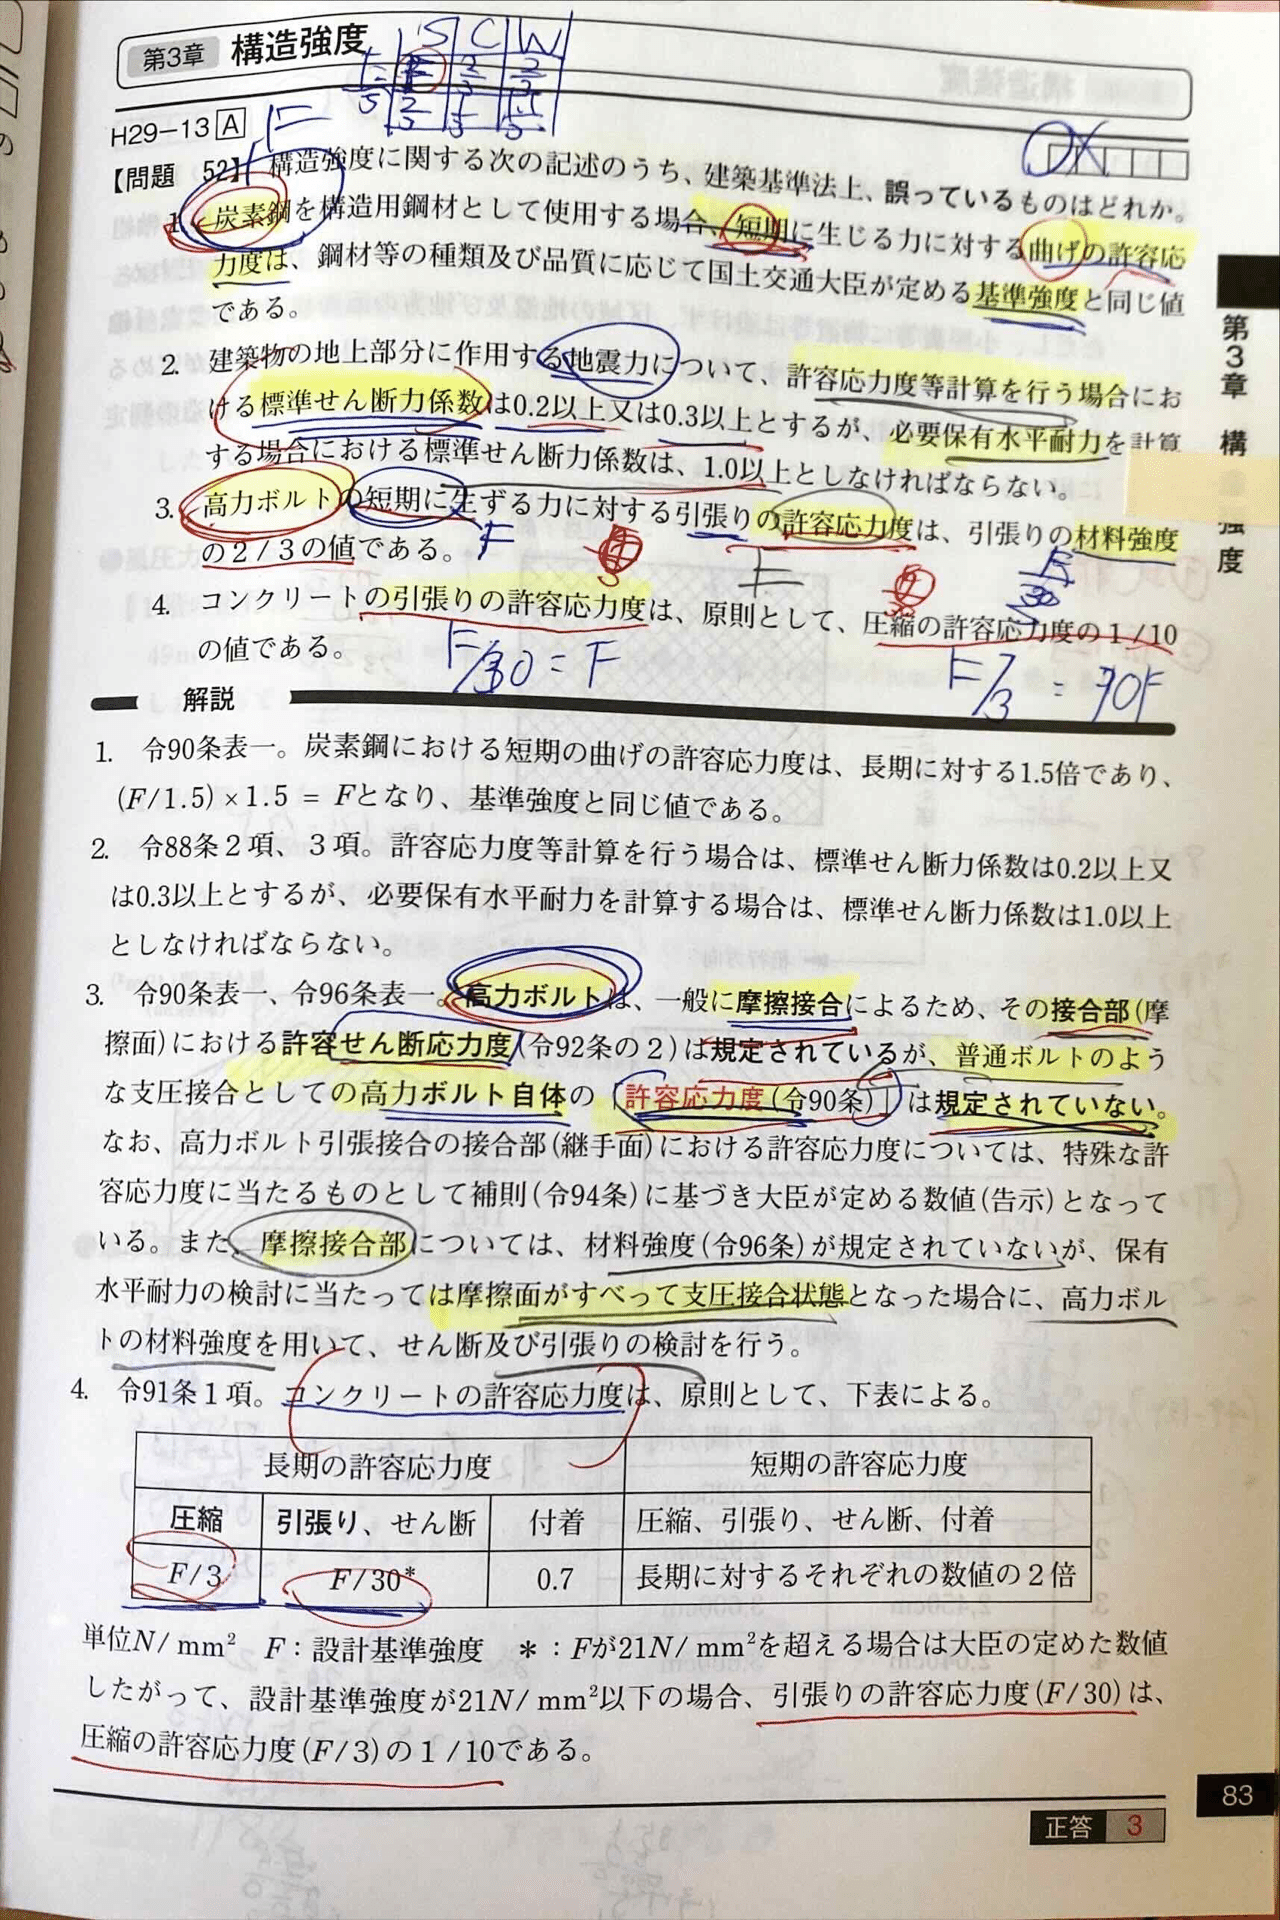 第3章 構造強度
S C W
H29－13 A
【問題 52】 構造強度に関する次の記述のうち、建築基準法上、誤っているものはどれか。
1. 炭素鋼を構造用鋼材として使用する場合、短期に生じる力に対する曲げの許容応
力度は、鋼材等の種類及び品質に応じて国土交通大臣が定める基準強度と同じ値
である。
2. 建築物の地上部分に作用する地震力について、許容応力度等計算を行う場合にお
ける標準せん断力係数は0.2以上又は0.3以上とするが、必要保有水平耐力を計算
する場合における標準せん断力係数は、1.0以上としなければならない。
3. 高力ボルトの短期に生ずる力に対する引張りの許容応力度は、引張りの材料強度
の2/3の値である。
F F
4. コンクリートの引張りの許容応力度は、原則として、圧縮の許容応力度の1/10
の値である。
第3章 構造強度
解説
1. 令90条表一。炭素鋼における短期の曲げの許容応力度は、長期に対する1.5倍であり、
(F/1.5)×1.5 = Fとなり、基準強度と同じ値である。
2. 令88条2項、3項。許容応力度等計算を行う場合は、標準せん断力係数は0.2以上又
は0.3以上とするが、必要保有水平耐力を計算する場合は、標準せん断力係数は1.0以上
としなければならない。
3. 令90条表一、令96条表一。高力ボルトは、一般に摩擦接合によるため、その接合部(摩
擦面)における許容せん断応力度(令92条の2)は規定されているが、普通ボルトのよう
な支圧接合としての高力ボルト自体の「許容応力度(令90条)」は規定されていない。
なお、高力ボルト引張接合の接合部(継手面)における許容応力度については、特殊な許
容応力度に当たるものとして補則(令94条)に基づき大臣が定める数値(告示)となって
いる。また、摩擦接合部については、材料強度(令96条)が規定されていないが、保有
水平耐力の検討に当たっては摩擦面がすべって支圧接合状態となった場合に、高力ボル
トの材料強度を用いて、せん断及び引張りの検討を行う。
4. 令91条1項。コンクリートの許容応力度は、原則として、下表による。
長期の許容応力度 短期の許容応力度
圧縮 引張り、せん断 付着 圧縮、引張り、せん断、付着
F/3 F/30* 0.7 長期に対するそれぞれの数値の2倍
単位N/mm² F：設計基準強度 ＊：Fが21N/mm²を超える場合は大臣の定めた数値
したがって、設計基準強度が21N/mm²以下の場合、引張りの許容応力度(F/30)は、
圧縮の許容応力度(F/3)の1/10である。
83
正答 3